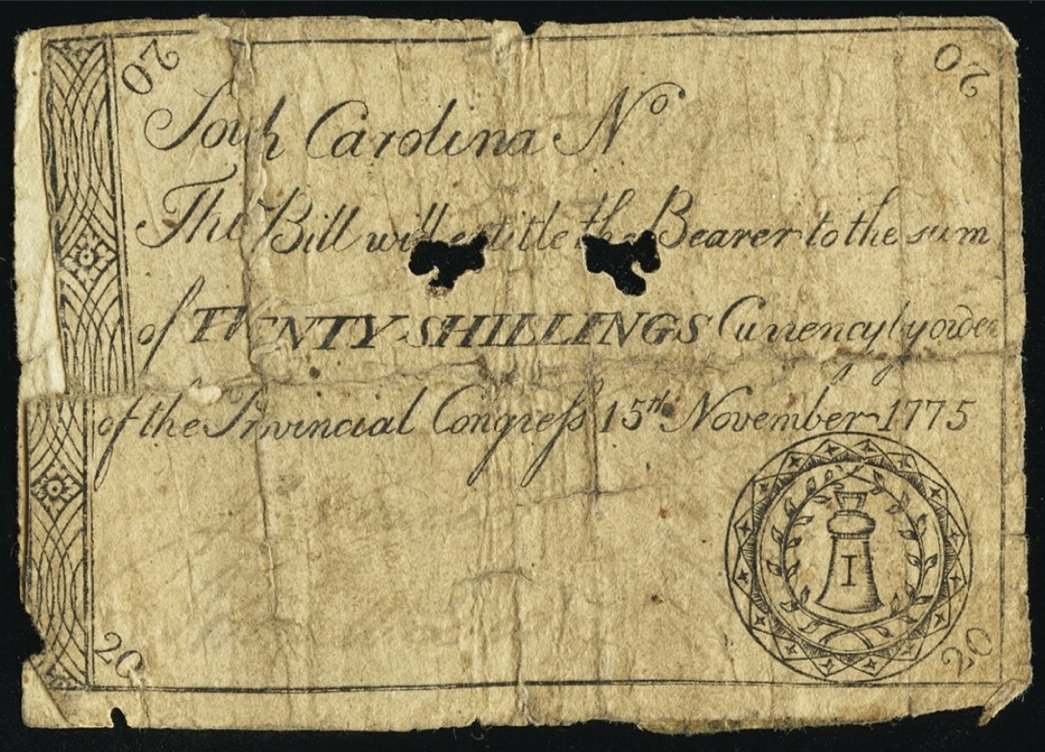 20 20
South Carolina Nº
This Bill will entitle the Bearer to the sum
of TWENTY SHILLINGS Currency by order
of the Provincial Congreſs 15th November 1775
I
20 20